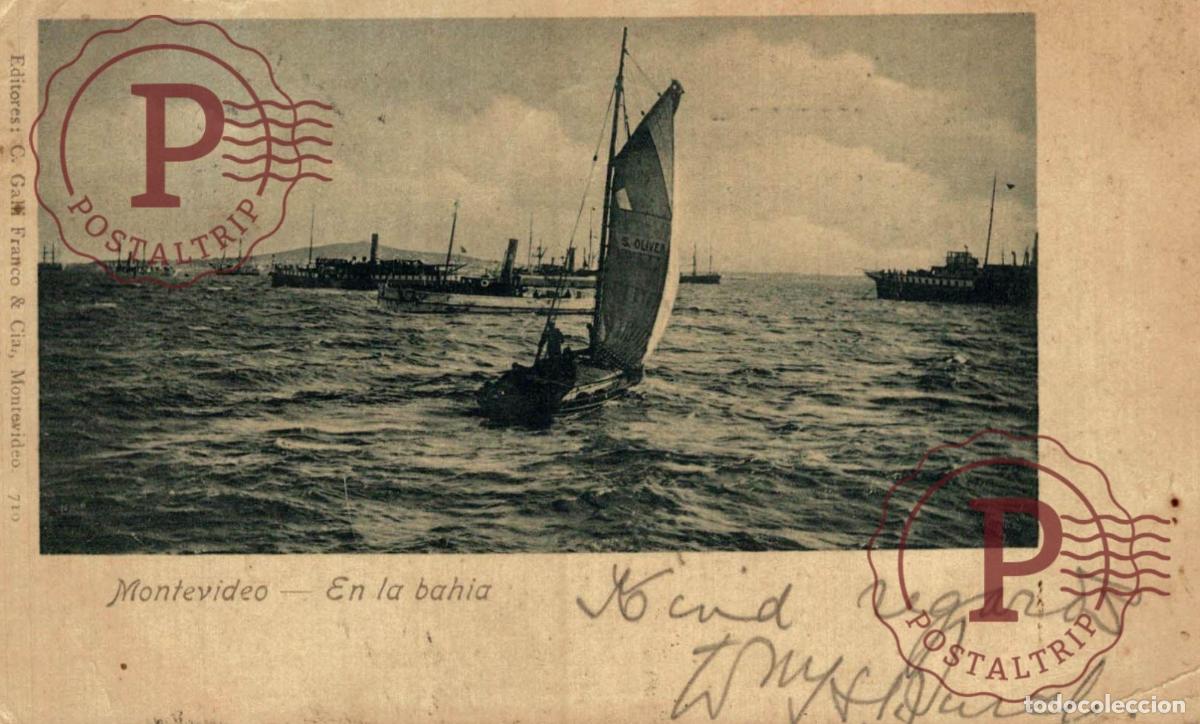 Editores: C. Galli Franco & Cia., Montevideo. 710
P
POSTALTRIP
S. OLIVER
Montevideo — En la bahia
Kind regards
P
POSTALTRIP
todocoleccion